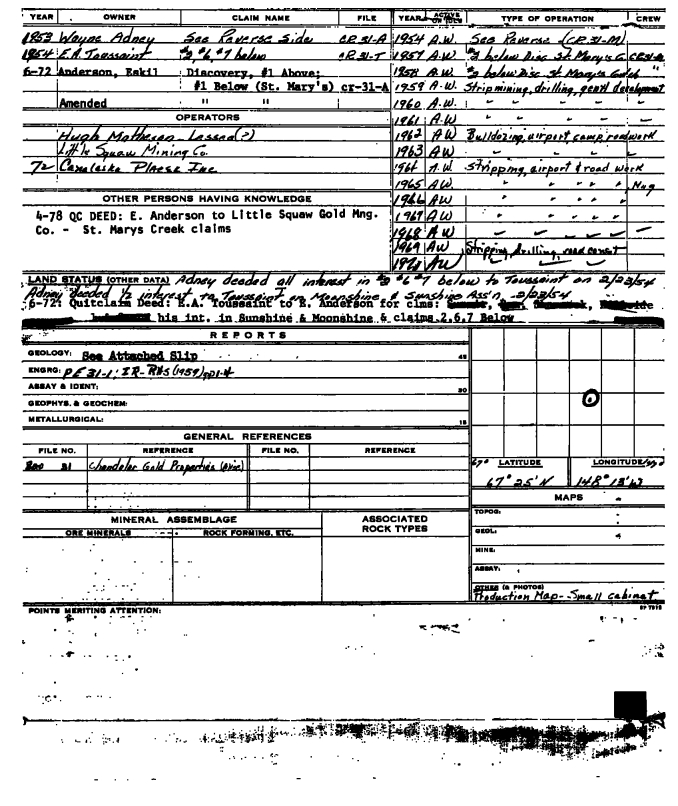 YEAR OWNER CLAIM NAME FILE YEAR ACTIVE TYPE OF OPERATION CREW
1953 Wayne Adney See Reverse Side CR 31-A 1954 A.W. See Reverse (CR 31-M)
1954 E.A. Toussaint #2 #6 #7 below CR 31-T 1957 A.W. below Disc St. Mary's G.
6-72 Anderson, Eskil Discovery, #1 Above; 1958 A.W. below Disc St. Mary's Gulch "
#1 Below (St. Mary's) cr-31-A 1959 A.W. Strip mining, drilling, gen'l development
Amended " " 1960 A.W. " " " "
OPERATORS 1961 A.W " " " "
Hugh Matheson Lessee(?) 1962 A.W Bulldozing, airport, camp, roadwork
Little Squaw Mining Co. 1963 A.W " " " "
72 Canalaska Placer Inc. 1964 A.W. Stripping, airport & road work
1965 A.W. " " " "
OTHER PERSONS HAVING KNOWLEDGE 1966 A.W " " " "
4-78 QC DEED: E. Anderson to Little Squaw Gold Mng. 1967 A.W " " " "
Co. - St. Marys Creek claims 1968 A.W " " " "
1969 AW Stripping, drilling, road const
1970 AW
LAND STATUS (OTHER DATA) Adney deeded all interest in #2 #6 #7 below to Toussaint on 2/23/54
Adney deeded 1/2 interest to Toussaint in Moonshine & Sunshine Ass'n. 2/23/54
6-72: Quitclaim Deed: E.A. Toussaint to E. Anderson for clms:
his int. in Sunshine & Moonshine & claims 2,6,7 Below
REPORTS
GEOLOGY: See Attached Slip 45
ENGRG: PE 31-1; IR-R&S (1959)
ASSAY & IDENT: 30
GEOPHYS. & GEOCHEM:
METALLURGICAL: 15
GENERAL REFERENCES
FILE NO. REFERENCE FILE NO. REFERENCE
31 Chandalar Gold Properties
67° LATITUDE LONGITUDE
67° 25' N 148° 13' W
MAPS
MINERAL ASSEMBLAGE ASSOCIATED ROCK TYPES
ORE MINERALS ROCK FORMING, ETC.
TOPOG:
GEOL:
MINE:
ASSAY:
OTHER (& PHOTOS)
Production Map - Small cabinet
POINTS MERITING ATTENTION: